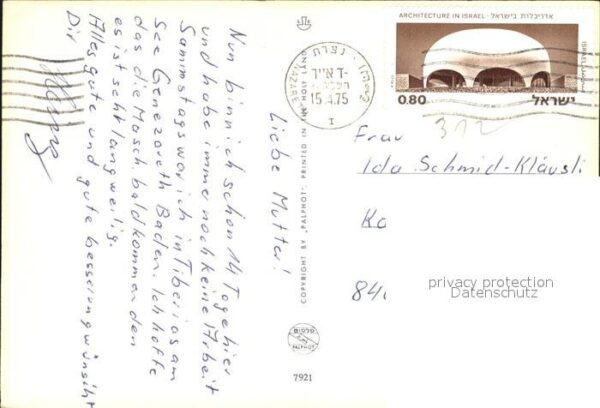 Liebe Mutter!
Nun bin ich schon 14 Tage hier
und habe immer noch keine Arbeit
Sammstags war ich in Tiberias am
See Genezareth Baden. Ich hoffe
das die Masch. bald kommen den
es ist seht langweilig.
Alles gute und gute besserung wünscht
Dir
COPYRIGHT BY "PALPHOT" · PRINTED IN THE HOLY LAND
פלפוט
PALPHOT
7921
נצרת
NAZARE
ד' אייר
15.4.75
I
ARCHITECTURE IN ISRAEL · אדריכלות בישראל
0.80
ישראל
312
Frau
Ida Schmid-Kläusli
Ko
840
privacy protection
Datenschutz